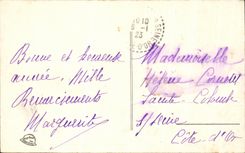 Bonne et heureuse
année. Mille
Remerciements
Marguerite
Mademoiselle
Hélène
Sainte Colombe
s/ Seine
Côte d'Or